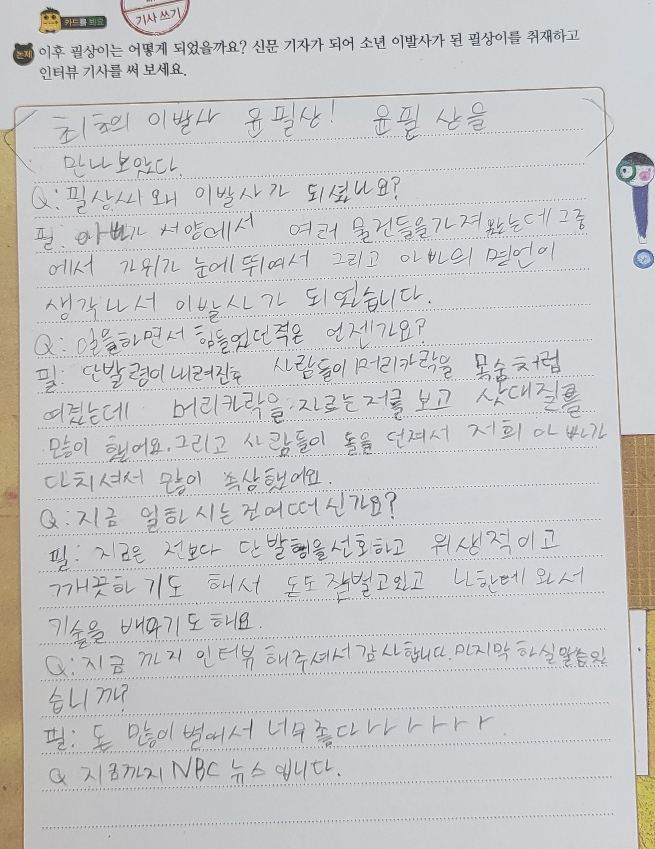 카드를 바꿔
기사 쓰기
논제 이후 필상이는 어떻게 되었을까요? 신문 기자가 되어 소년 이발사가 된 필상이를 취재하고
인터뷰 기사를 써 보세요.
최초의 이발사 윤필상! 윤필상을
만나보았다.
Q: 필상씨 왜 이발사가 되셨나요?
필: 아빠가 서양에서 여러 물건들을 가져왔는데 그중
에서 가위가 눈에 뛰여서 그리고 아빠의 명언이
생각나서 이발사가 되었습니다.
Q: 일을하면서 힘들었던적은 언젠가요?
필: 단발령이 내려진후 사람들이 머리카락을 목숨처럼
여겼는데 머리카락을 자르는 저를 보고 삿대질를
많이 했어요. 그리고 사람들이 돌을 던져서 저희 아빠가
다치셔서 많이 속상했어요.
Q: 지금 일하시는건 어떠신가요?
필: 지금은 전보다 단발형을 선호하고 위생적이고
깨끗하기도 해서 돈도 잘벌고있고 나한테 와서
기술을 배우기도 해요.
Q: 지금 까지 인터뷰 해주셔서 감사합니다. 마지막 하실 말씀있
습니까?
필: 돈 많이 벌어서 너무 좋다ㅏㅏㅏㅏㅏㅏ.
Q 지금까지 NBC 뉴스 입니다.